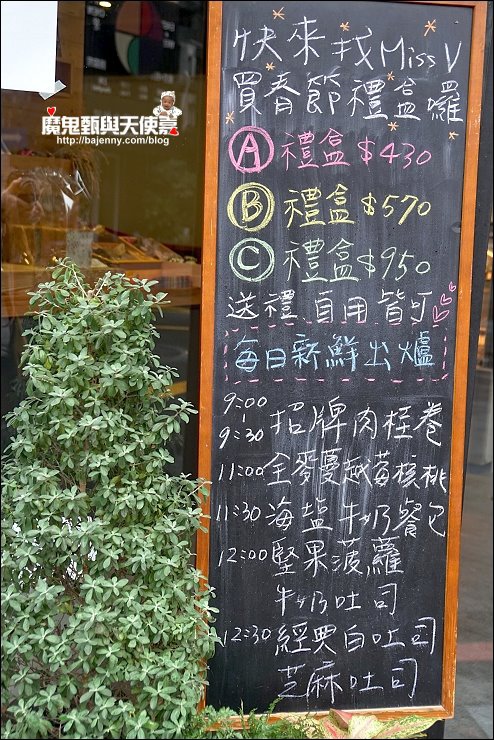 魔鬼甄與天使嘉
http://bajenny.com/blog
快來找Miss V
買春節禮盒囉
A 禮盒 $430
B 禮盒 $570
C 禮盒 $950
送禮自用皆可
每日新鮮出爐
9:00
9:30 招牌肉桂卷
11:00 全麥蔓越莓核桃
11:30 海盐牛奶餐包
12:00 堅果菠蘿
牛奶吐司
12:30 經典白吐司
芝麻吐司